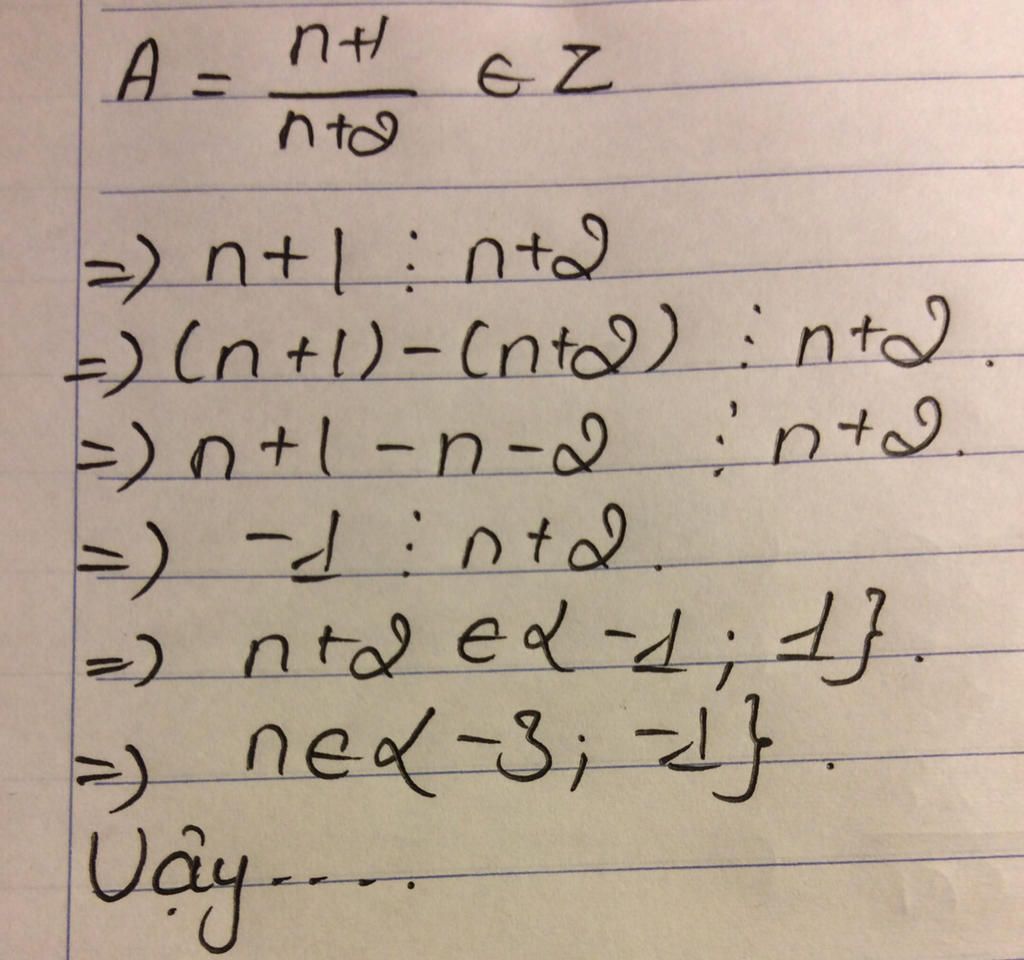 A = \frac{n+1}{n+2} ∈ Z
=) n+1 ⋮ n+2
=) (n+1)-(n+2) ⋮ n+2.
=) n+1-n-2 ⋮ n+2.
=) -1 ⋮ n+2.
=) n+2 ∈ {-1; 1}.
=) n ∈ {-3; -1}.
Vậy.....